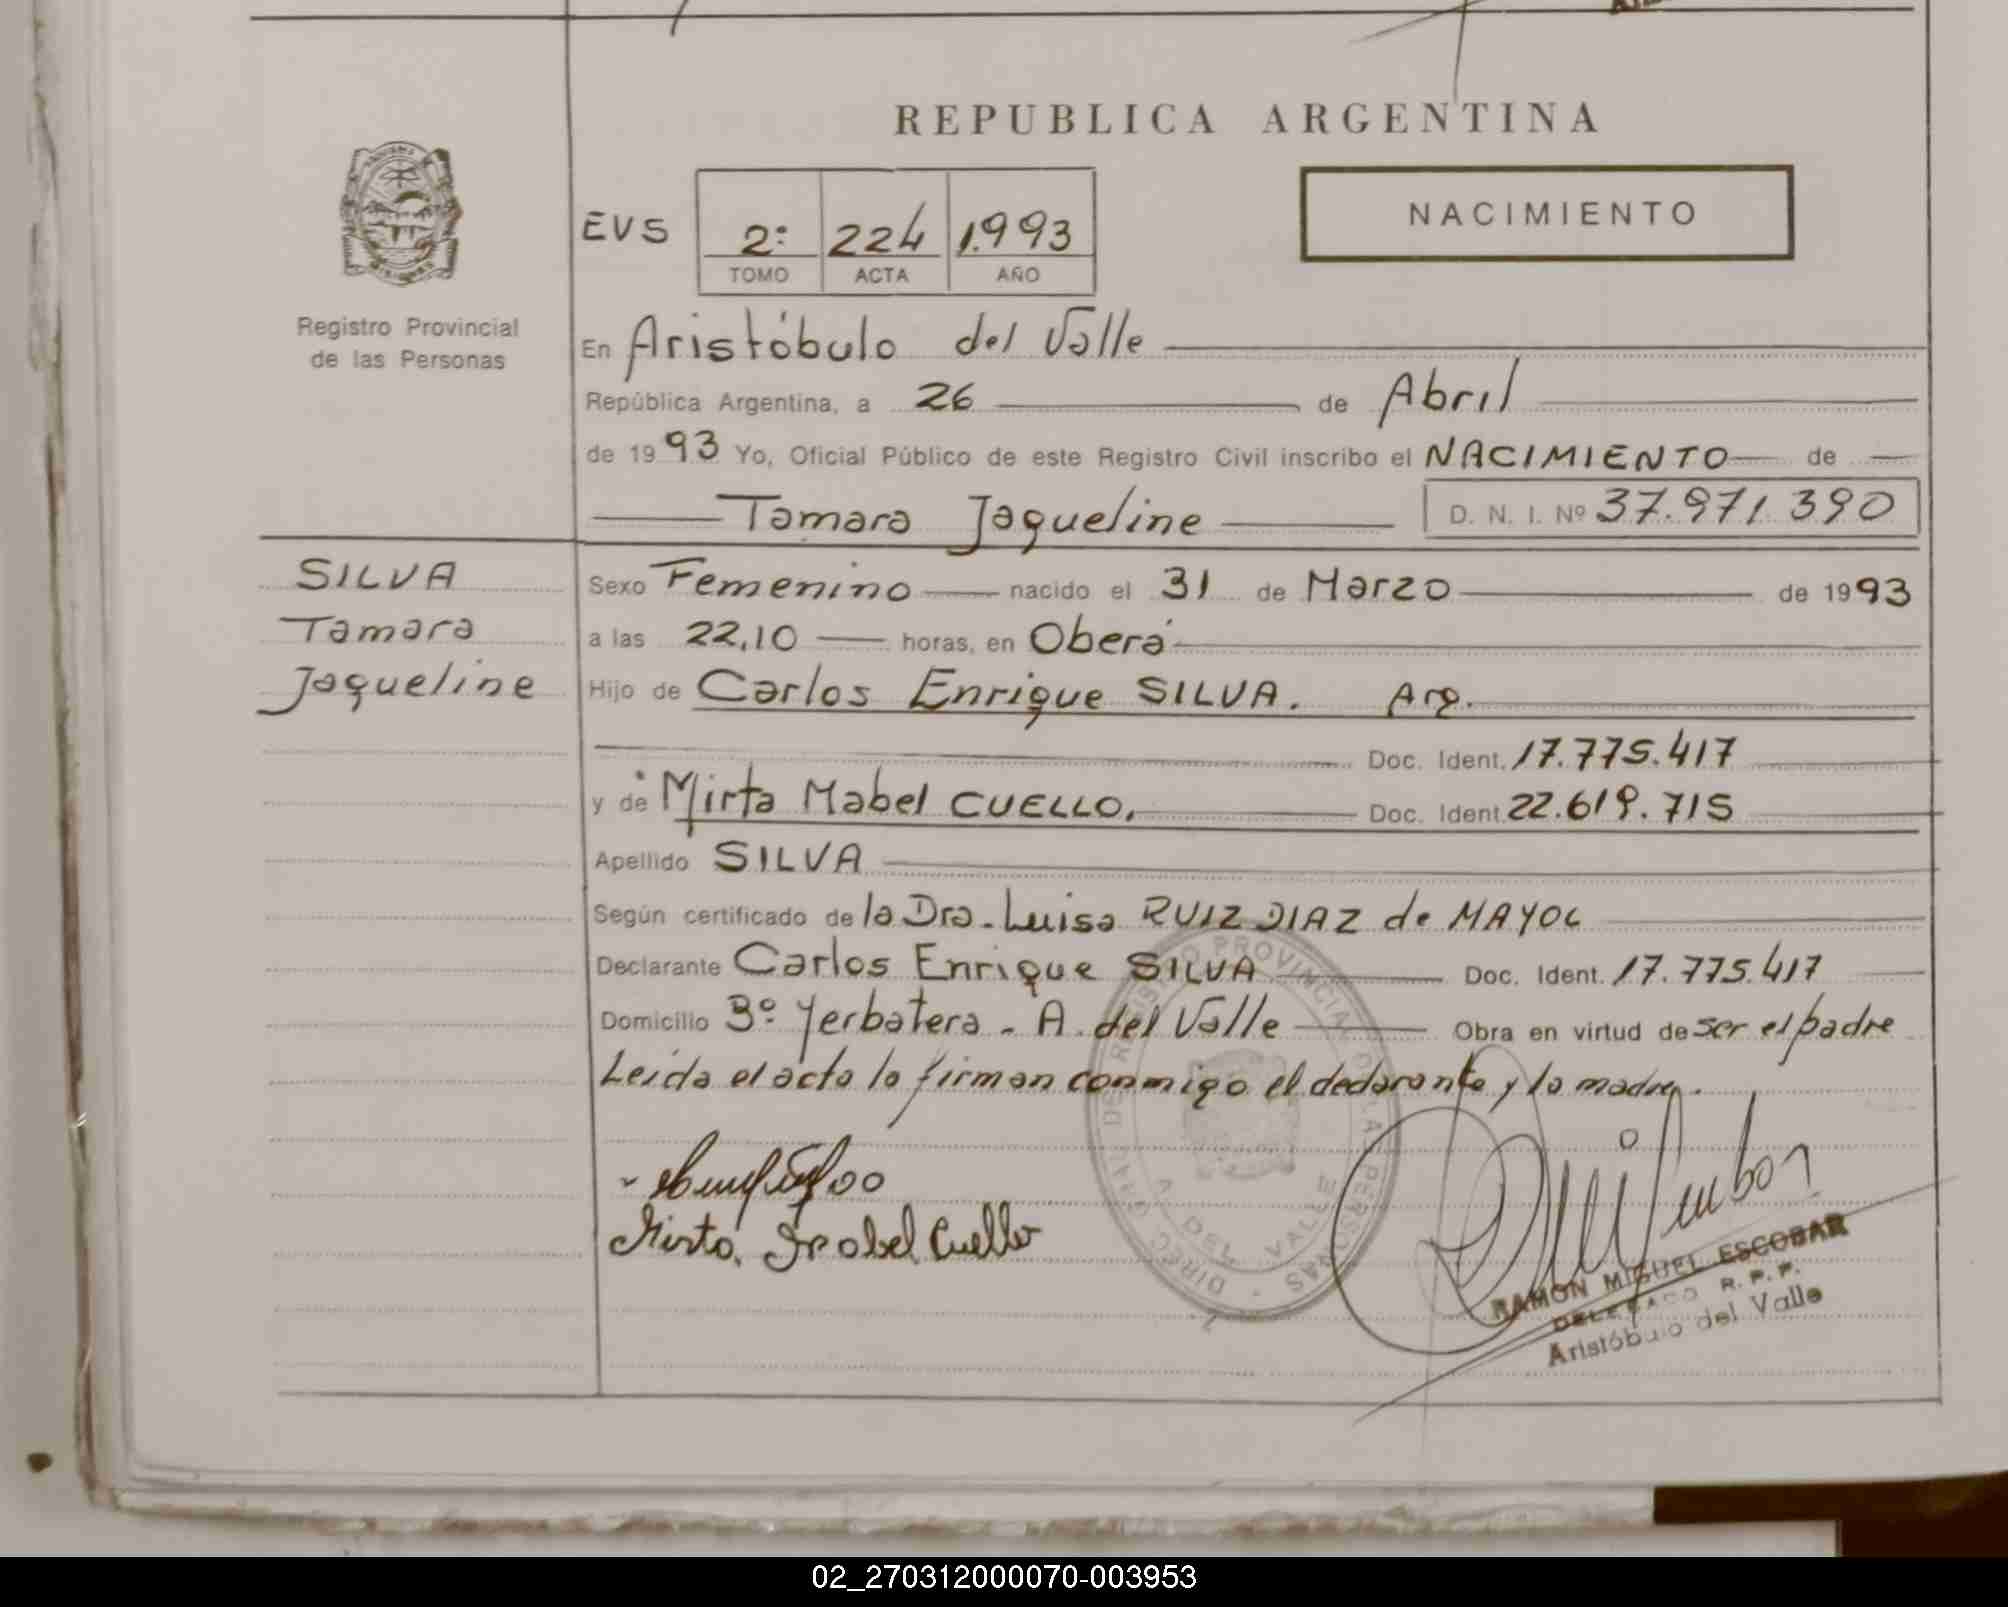 REPUBLICA ARGENTINA
NACIMIENTO
EVS 2º 224 1.993
TOMO ACTA AÑO
Registro Provincial
de las Personas
En Aristóbulo del Valle
República Argentina, a 26 de Abril
de 1993 Yo, Oficial Público de este Registro Civil inscribo el NACIMIENTO de
Tamara Jaqueline D. N. I. Nº 37.971.390
SILVA
Tamara
Jaqueline
Sexo Femenino nacido el 31 de Marzo de 1993
a las 22,10 horas, en Oberá
Hijo de Carlos Enrique SILVA. Arg.
Doc. Ident. 17.775.417
y de Mirta Mabel CUELLO. Doc. Ident. 22.619.715
Apellido SILVA
Según certificado de la Dra. Luisa RUIZ DIAZ de MAYOL
Declarante Carlos Enrique SILVA Doc. Ident. 17.775.417
Domicilio 3º Yerbatera - A. del Valle Obra en virtud de ser el padre
Leída el acta la firman conmigo el declarante y la madre.
DIREC. GRAL. DE REGISTRO PROVINCIAL DE LAS PERSONAS
A. DEL VALLE
Cuello
RAMON MIGUEL ESCOBAR
DELEGADO R. P. P.
Aristóbulo del Valle
02_270312000070-003953